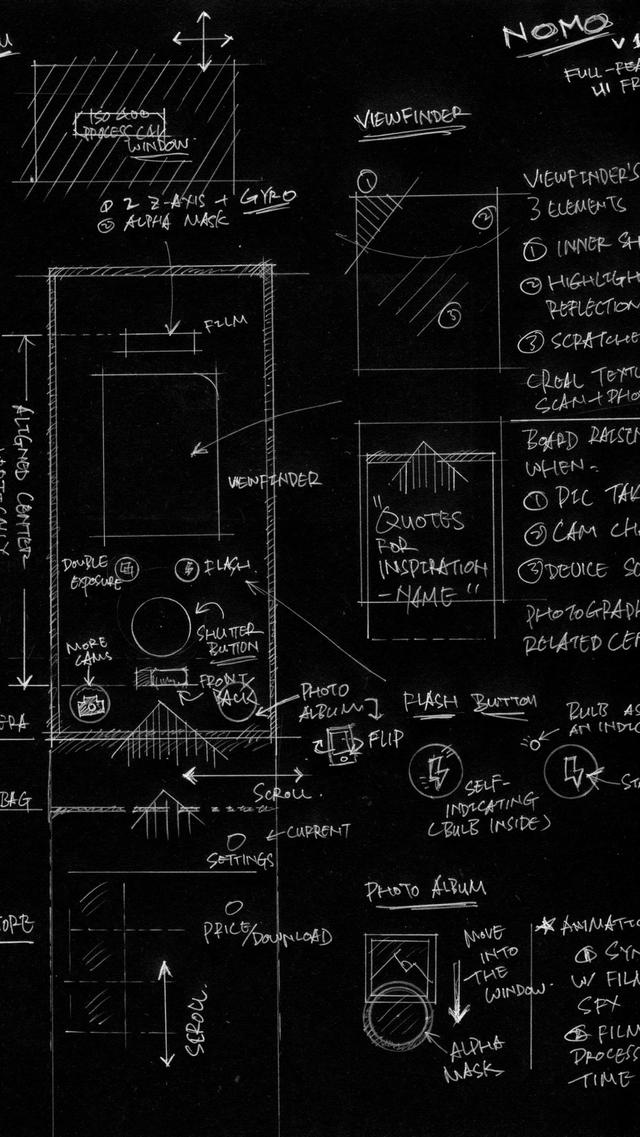 NOMO
V 1
FULL-FEA
UI FR
ISO 400
WINDOW
① 2 Z-AXIS + GYRO
② ALPHA MASK
FILM
ALIGNED CENTER
VERTICALLY
VIEWFINDER
DOUBLE
EXPOSURE
FLASH
SHUTTER
BUTTON
MORE
CAMS
FRONT
BACK
PHOTO
ALBUM
FLIP
ERA
SCROLL.
BAG
CURRENT
SETTINGS
ORE
PRICE/DOWNLOAD
SCROLL.
VIEWFINDER
①
②
③
VIEWFINDER'S
3 ELEMENTS
① INNER SH
② HIGHLIGH
REFLECTION
③ SCRATCHE
(REAL TEXTU
SCAN + PHO
"QUOTES
FOR
INSPIRATION
-NAME"
BOARD RAISIN
WHEN-
① PIC TAK
② CAM CH
③ DEVICE SC
PHOTOGRAPH
RELATED CE
FLASH BUTTON
SELF-
INDICATING
(BULB INSIDE)
BULB AS
AN INDIC
STA
PHOTO ALBUM
MOVE
INTO
THE
WINDOW.
ALPHA
MASK
★ ANIMATIO
① SYN
W/ FILM
SFX
② FILM
PROCESS
TIME